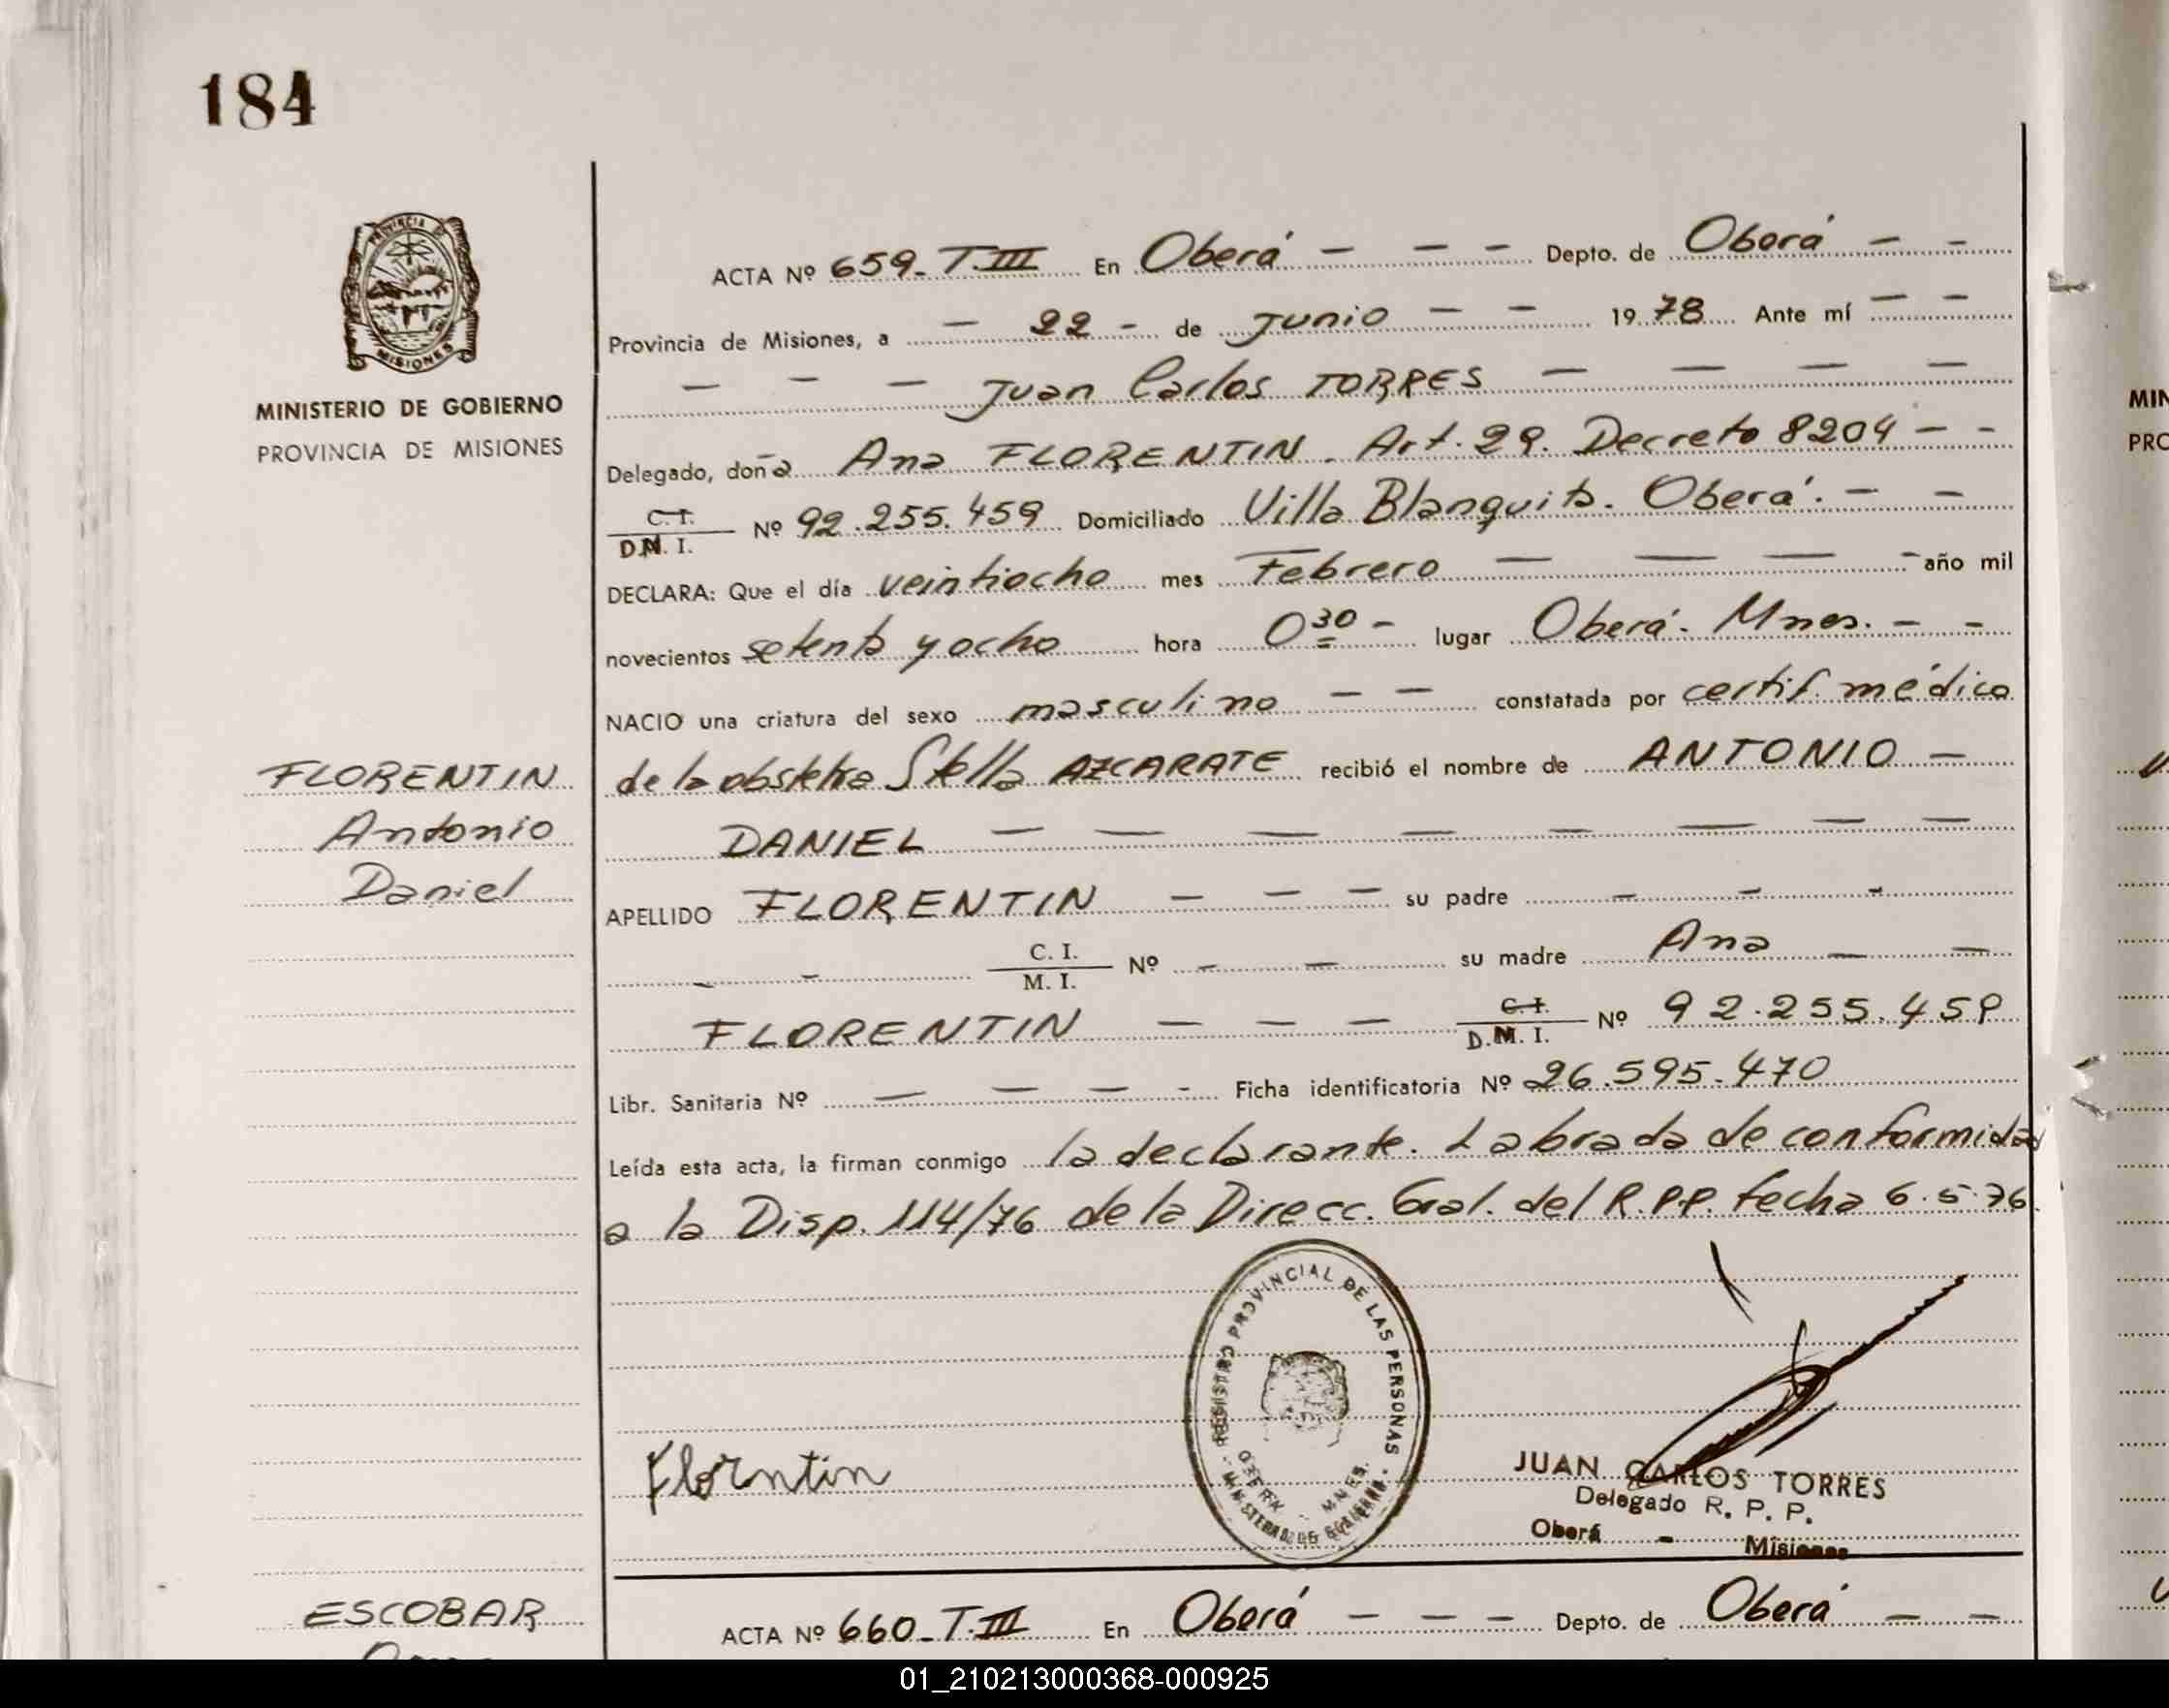 184
PROVINCIA DE
MISIONES
MINISTERIO DE GOBIERNO
PROVINCIA DE MISIONES
ACTA Nº 659_T.III En Oberá - - - Depto. de Oberá - -
Provincia de Misiones, a - 22 - de Junio - - 1978 Ante mí - -
- - - Juan Carlos TORRES - - - -
Delegado, doña Ana FLORENTIN. Art. 29. Decreto 8204 - -
C. I.
D.N. I. Nº 92.255.459 Domiciliado Villa Blanquita. Oberá. - -
DECLARA: Que el día veintiocho mes Febrero - - - - año mil
novecientos setenta y ocho hora 0 30 - lugar Oberá. Mnes. - -
NACIO una criatura del sexo masculino - - constatada por certif. médico
de la obstetra Stella AZCARATE recibió el nombre de ANTONIO -
DANIEL - - - - - - - -
APELLIDO FLORENTIN - - - su padre - - -
- - C. I.
M. I. Nº - - su madre Ana - -
FLORENTIN - - - C. I.
D.N. I. Nº 92.255.459
Libr. Sanitaria Nº - - - - Ficha identificatoria Nº 26.595.470
Leída esta acta, la firman conmigo la declarante. Labrada de conformidad
a la Disp. 114/76 de la Direcc. Gral. del R.P.P. fecha 6.5.76.
FLORENTIN
Antonio
Daniel
REGISTRO PROVINCIAL DE LAS PERSONAS
OBERA - MNES.
MINISTERIO DE GOBIERNO
Florntin
JUAN CARLOS TORRES
Delegado R. P. P.
Oberá - Misiones
ESCOBAR
ACTA Nº 660_T.III En Oberá - - - Depto. de Oberá - -
MIN
PRO
01_210213000368-000925